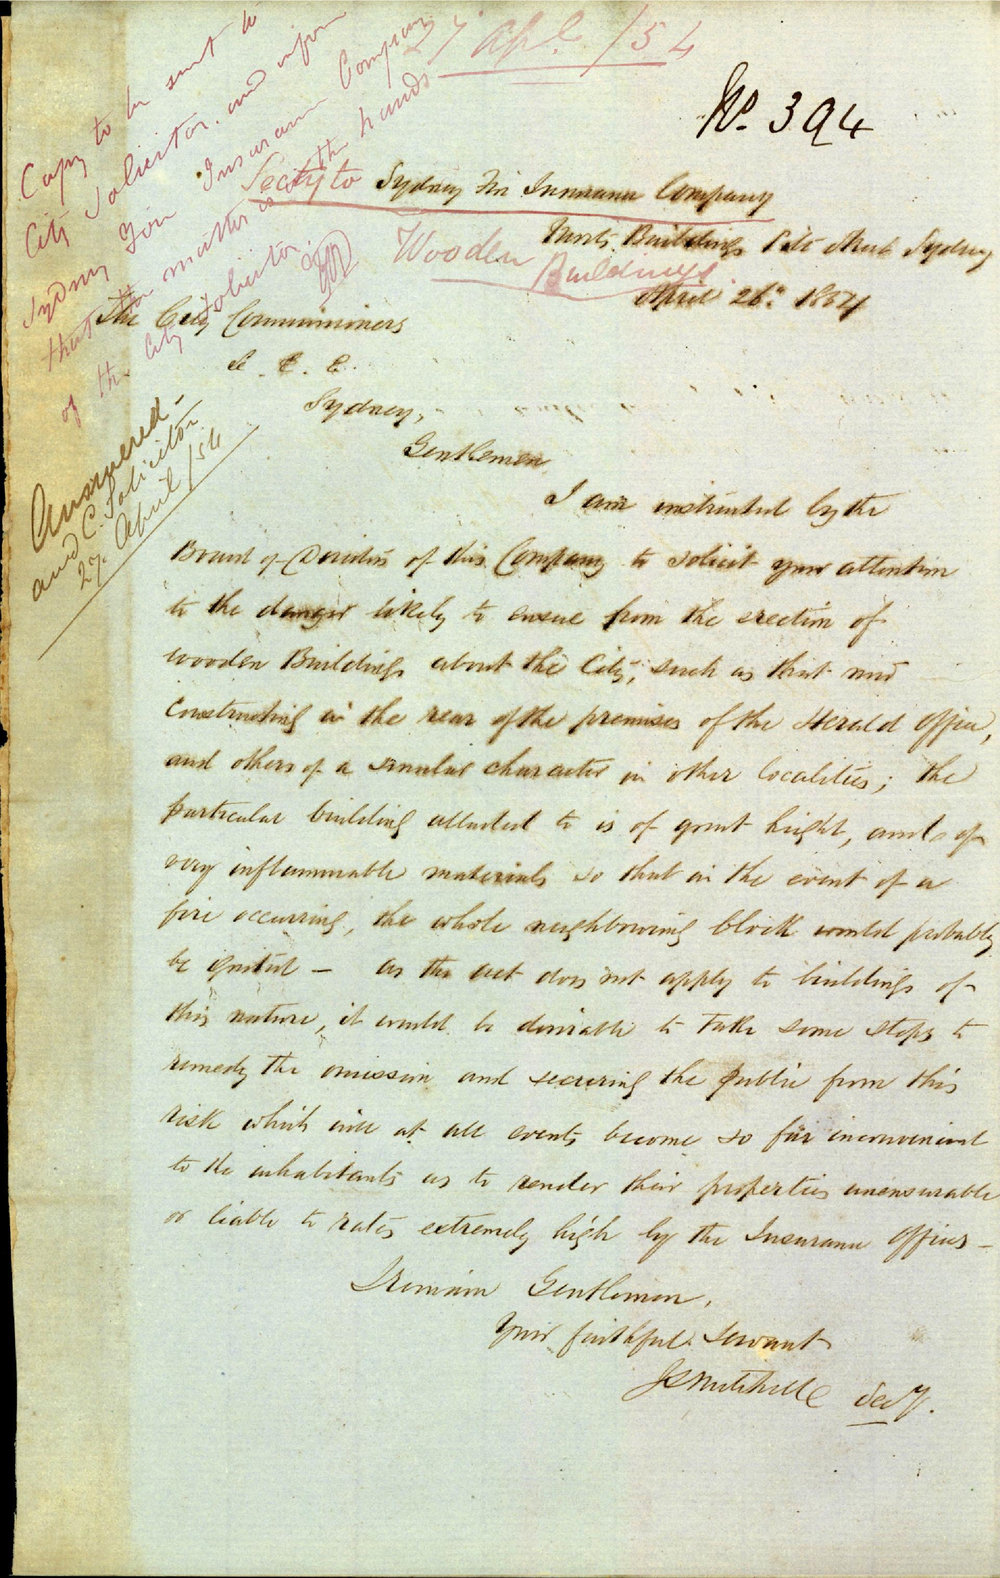 27 Apl /54
No. 394
Copy to be sent to
City Solicitor. and inform
Sydney Fire Insurance Company
that the matter is in the hands
of the City Solicitor.
Secty to Sydney Fire Insurance Company
Morts Buildings Pitt Street Sydney
Wooden
Buildings.
April 26th 1854
The City Commissioners
&c. &c. &c.
Sydney,
Gentlemen
Answered
and C. Solicitor
27 April /54
I am instructed by the
Board of Directors of this Company to solicit your attention
to the danger likely to ensue from the erection of
wooden Buildings about the City, such as that now
Constructing in the rear of the premises of the Herald Office,
and others of a similar character in other localities; the
particular building alluded to is of great height, and of
very inflammable materials so that in the event of a
fire occurring, the whole neighbouring block would probably
be ignited - as the act does not apply to buildings of
this nature, it would be desirable to take some steps to
remedy the omission and securing the public from this
risk which will at all events become so far inconvenient
to the inhabitants as to render their properties uninsurable
or liable to rates extremely high by the Insurance Offices -
I remain Gentlemen,
Your faithful Servant
Mitchell Secy.